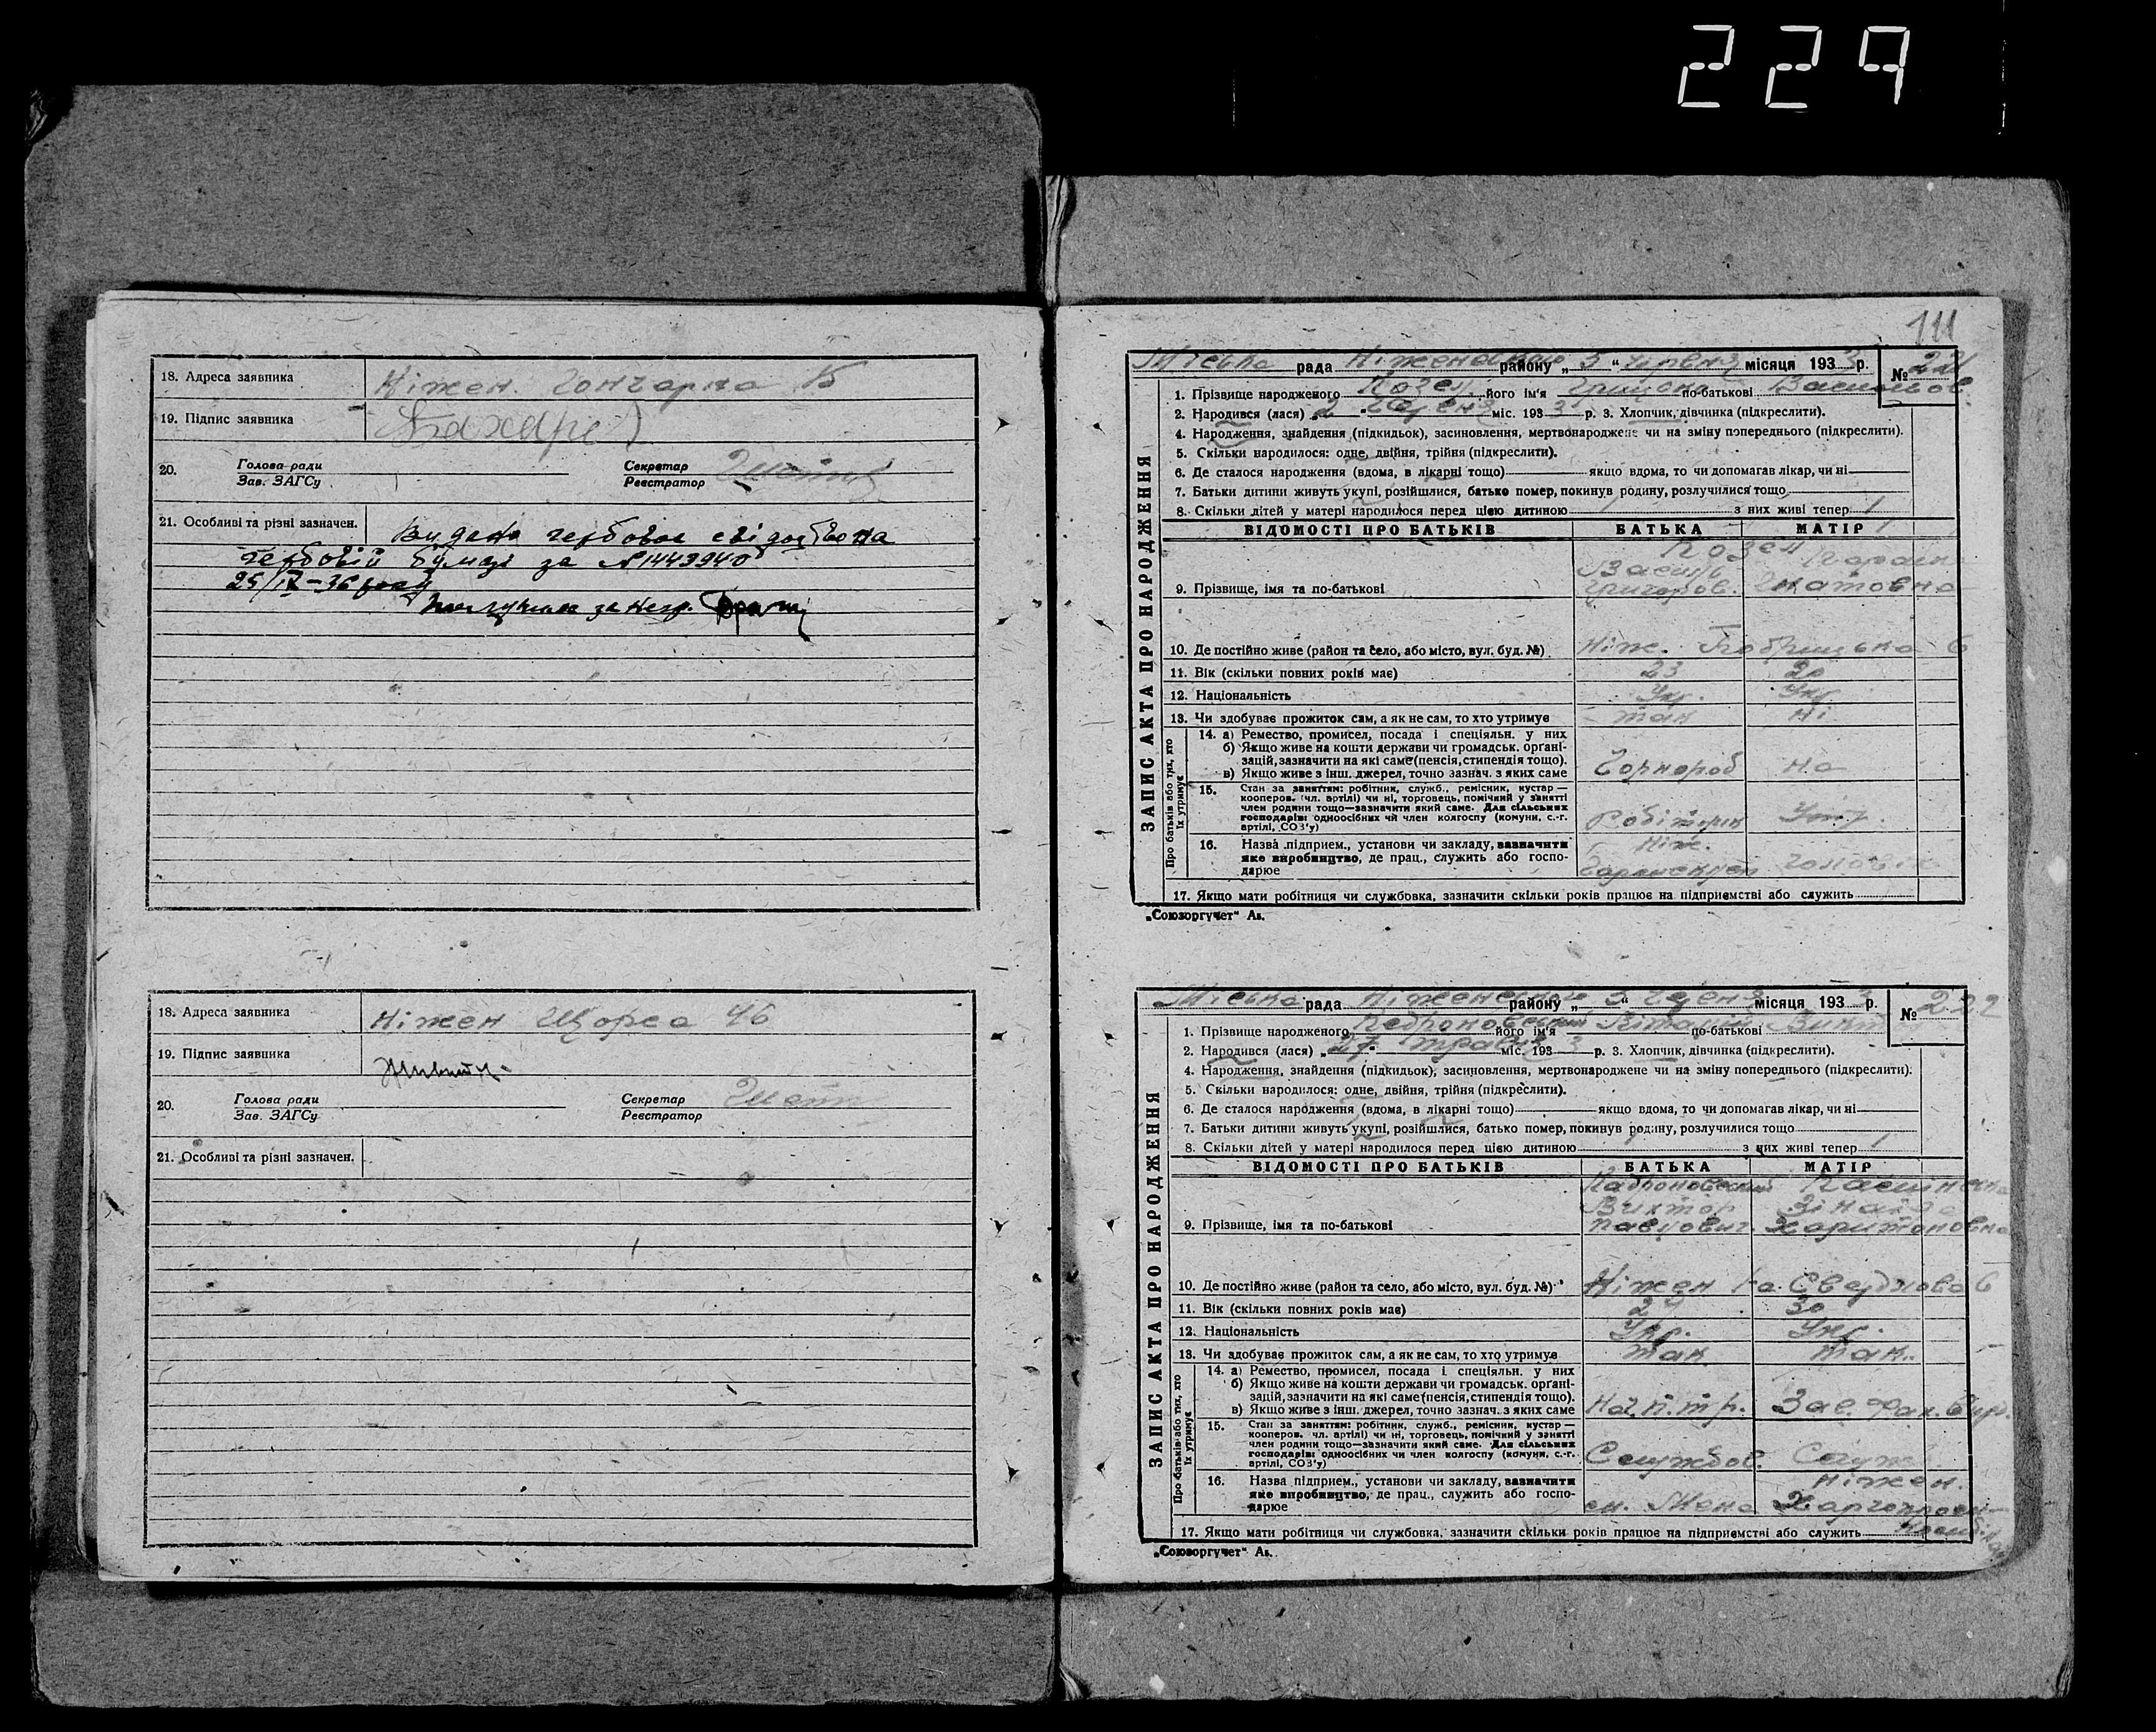 229
18. Адреса заявника Ніжен Гончарна 15
19. Підпис заявника
20. Голова ради Секретар
Зав. ЗАГСу Реєстратор
21. Особливі та різні зазначен. Видано гербове свідоцтво на
гербовій бумазі за №1443940
25/IV-36 року
18. Адреса заявника Ніжен Щорса 46
19. Підпис заявника
20. Голова ради Секретар
Зав. ЗАГСу Реєстратор
21. Особливі та різні зазначен.
111
ЗАПИС АКТА ПРО НАРОДЖЕННЯ
Міська рада району „ 5 “ червня місяця 193 3 р. № 221
1. Прізвище народженого Козел його ім'я по-батькові
2. Народився (лася) 2 червня міс. 193 3 р. 3. Хлопчик, дівчинка (підкреслити).
4. Народження, знайдення (підкидьок), засиновлення, мертвонароджене чи на зміну попереднього (підкреслити).
5. Скільки народилося: одне, двійня, трійня (підкреслити).
6. Де сталося народження (вдома, в лікарні тощо) якщо вдома, то чи допомагав лікар, чи ні
7. Батьки дитини живуть укупі, розійшлися, батько помер, покинув родину, розлучилися тощо
8. Скільки дітей у матері народилося перед цією дитиною 1 з них живі тепер 1
ВІДОМОСТІ ПРО БАТЬКІВ БАТЬКА МАТІР
Козел
Василь
9. Прізвище, імя та по-батькові Григоров. Гнатовна
10. Де постійно живе (район та село, або місто, вул. буд. №) Ніж. 6
11. Вік (скільки повних років має) 23 20
12. Національність Укр. Укр.
13. Чи здобуває прожиток сам, а як не сам, то хто утримує так ні
Про батьків або тих, хто їх утримує
14. а) Ремество, промисел, посада і спеціяльн. у них
б) Якщо живе на кошти держави чи громадськ. органі-
зацій, зазначити на які саме (пенсія, стипендія тощо).
в) Якщо живе з інш. джерел, точно зазнач. з яких саме Чорнороб
15. Стан за заняттям: робітник, служб., ремісник, кустар —
кооперов. (чл. артілі) чи ні, торговець, помічний у занятті
член родини тощо—зазначити який саме. Для сільських
господарів: одноосібних чи член колгоспу (комуни, с.-г.
артілі, СОЗ'у) Робітник Утр.
16. Назва підприєм., установи чи закладу, зазначити Ніж.
яке виробництво, де прац., служить або госпо-
дарює
17. Якщо мати робітниця чи службовка, зазначити скільки років працює на підприємстві або служить
„Союзоргучет“ Ав.
ЗАПИС АКТА ПРО НАРОДЖЕННЯ
Міська рада району „ 3 “ червня місяця 193 3 р. № 222
1. Прізвище народженого його ім'я по-батькові
2. Народився (лася) „ 27 “ травня міс. 193 3 р. 3. Хлопчик, дівчинка (підкреслити).
4. Народження, знайдення (підкидьок), засиновлення, мертвонароджене чи на зміну попереднього (підкреслити).
5. Скільки народилося: одне, двійня, трійня (підкреслити).
6. Де сталося народження (вдома, в лікарні тощо) якщо вдома, то чи допомагав лікар, чи ні
7. Батьки дитини живуть укупі, розійшлися, батько помер, покинув родину, розлучилися тощо
8. Скільки дітей у матері народилося перед цією дитиною 1 з них живі тепер 1
ВІДОМОСТІ ПРО БАТЬКІВ БАТЬКА МАТІР
Виктор Зінаїда
9. Прізвище, імя та по-батькові Павлович Харитоновна
10. Де постійно живе (район та село, або місто, вул. буд. №) Ніжен 6
11. Вік (скільки повних років має) 30
12. Національність Укр. Укр.
13. Чи здобуває прожиток сам, а як не сам, то хто утримує так так
Про батьків або тих, хто їх утримує
14. а) Ремество, промисел, посада і спеціяльн. у них
б) Якщо живе на кошти держави чи громадськ. органі-
зацій, зазначити на які саме (пенсія, стипендія тощо).
в) Якщо живе з інш. джерел, точно зазнач. з яких саме
15. Стан за заняттям: робітник, служб., ремісник, кустар —
кооперов. чл. артілі) чи ні, торговець, помічний у занятті
член родини тощо—зазначити який саме. Для сільських
господарів: одноосібних чи член колгоспу (комуни, с.-г.
артілі, СОЗ'у) Службов. Служ.
16. Назва підприєм., установи чи закладу, зазначити Ніжен.
яке виробництво, де прац., служить або госпо-
дарює ст. Мена
17. Якщо мати робітниця чи службовка, зазначити скільки років працює на підприємстві або служить
„Союзоргучет“ Ав.